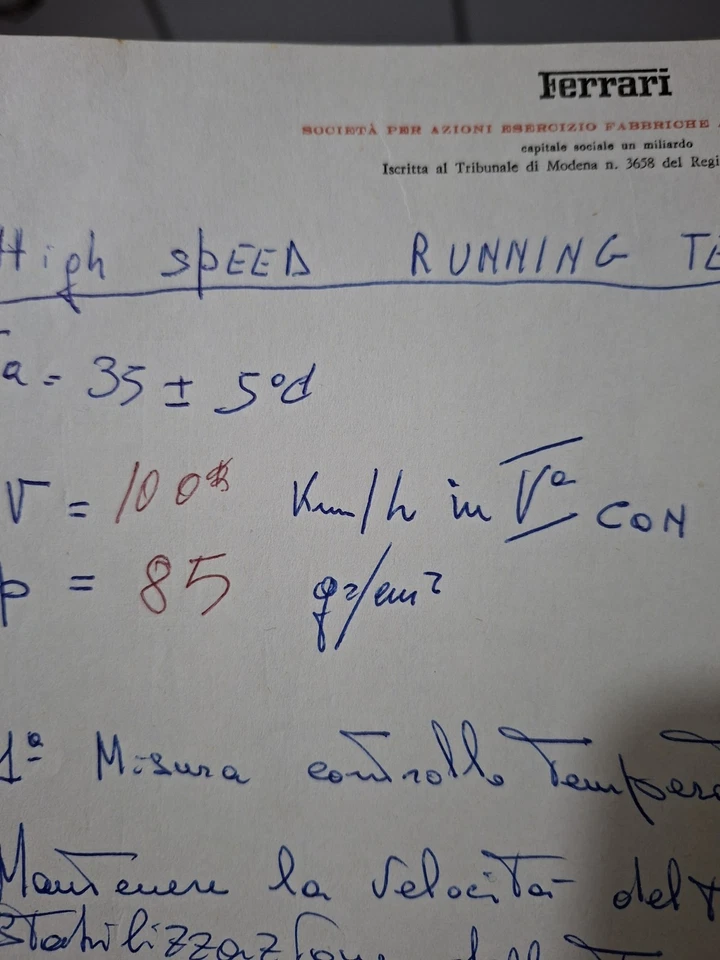 Ferrari
SOCIETÀ PER AZIONI ESERCIZIO FABBRICHE
capitale sociale un miliardo
Iscritta al Tribunale di Modena n. 3658 del Regi
High SPEED RUNNING TE
a = 35 ± 5°C
V = 100 Km/h in Vª CON
p = 85 gr/cm²
1ª Misura controllo Tempera
Mantenere la velocità del
Stabilizzazione